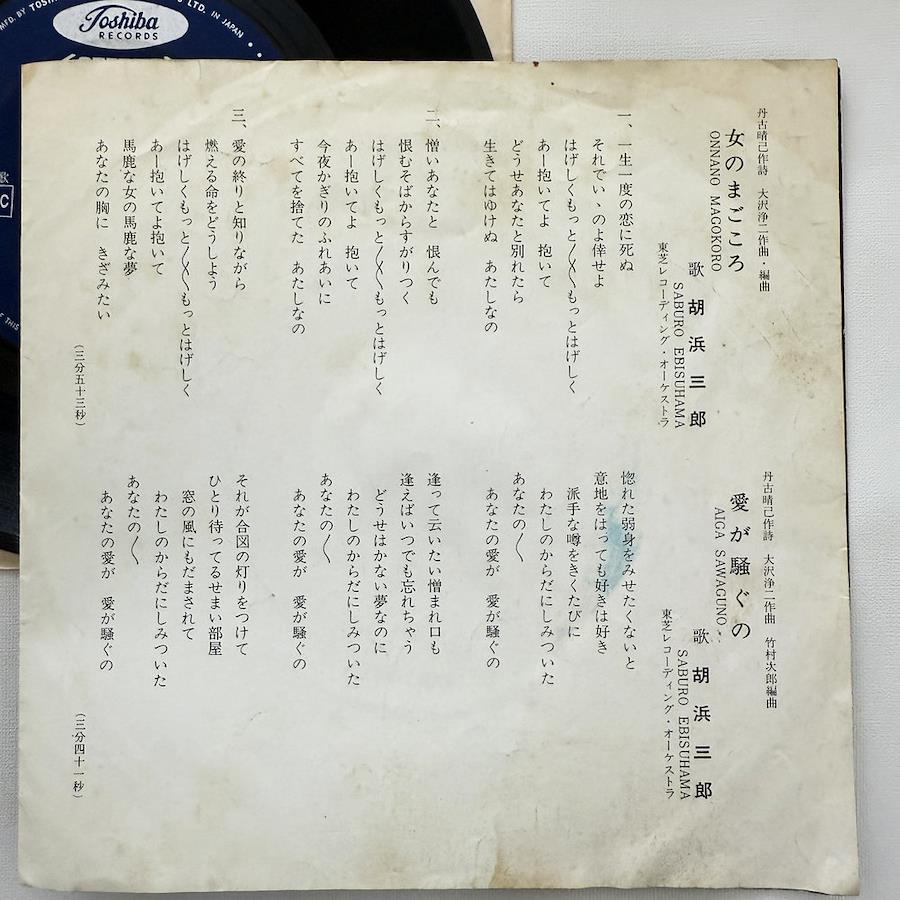 MFD. BY TOSH
LTD. IN JAPAN
Toshiba
RECORDS
歌
C
F THIS
丹古晴己作詩　大沢浄二作曲・編曲
女のまごころ
ONNANO MAGOKORO
歌　胡浜三郎
SABURO EBISUHAMA
東芝レコーディング・オーケストラ
一、一生一度の恋に死ぬ
それでいゝのよ倖せよ
はげしくもっと〱〱もっとはげしく
あー抱いてよ　抱いて
どうせあなたと別れたら
生きてはゆけぬ　あたしなの
二、憎いあなたと　恨んでも
恨むそばからすがりつく
はげしくもっと〱〱もっとはげしく
あー抱いてよ　抱いて
今夜かぎりのふれあいに
すべてを捨てた　あたしなの
三、愛の終りと知りながら
燃える命をどうしよう
はげしくもっと〱〱もっとはげしく
あー抱いてよ抱いて
馬鹿な女の馬鹿な夢
あなたの胸に　きざみたい
（三分五十三秒）
丹古晴己作詩　大沢浄二作曲　竹村次郎編曲
愛が騒ぐの
AIGA SAWAGUNO
歌　胡浜三郎
SABURO EBISUHAMA
東芝レコーディング・オーケストラ
惚れた弱身をみせたくないと
意地をはっても好きは好き
派手な噂をきくたびに
わたしのからだにしみついた
あなたの〱
あなたの愛が　愛が騒ぐの
逢って云いたい憎まれ口も
逢えばいつでも忘れちゃう
どうせはかない夢なのに
わたしのからだにしみついた
あなたの〱
あなたの愛が　愛が騒ぐの
それが合図の灯りをつけて
ひとり待ってるせまい部屋
窓の風にもだまされて
わたしのからだにしみついた
あなたの〱
あなたの愛が　愛が騒ぐの
（三分四十一秒）